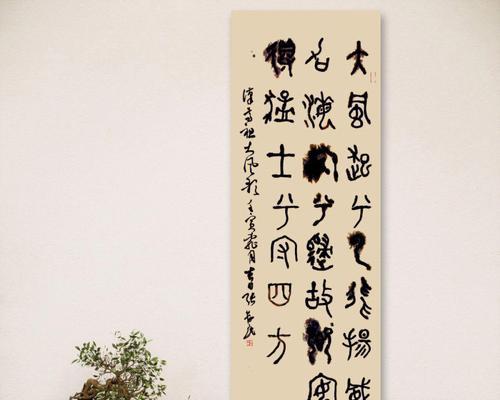 大風起兮雲飛揚威
加海內兮歸故鄉安
得猛士兮守四方
漢高祖大风歌壬寅月